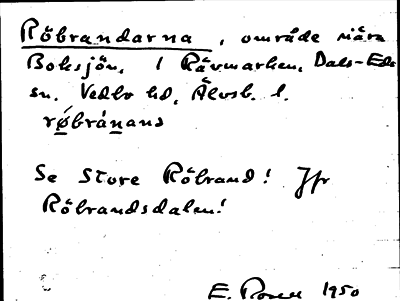 Röbrandarna, område nära
Boksjön, i Rävmarken, Dals-Eds
sn. Vedbo hd, Älvsb. l.
røbránans
Se Store Röbrand! Jfr
Röbrandsdalen!
E. 1950